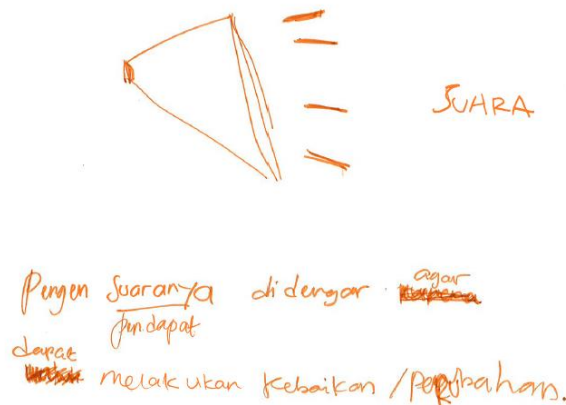 SUARA
Pengen Suaranya didengar agar
pendapat
dapat
melakukan kebaikan / perubahan.